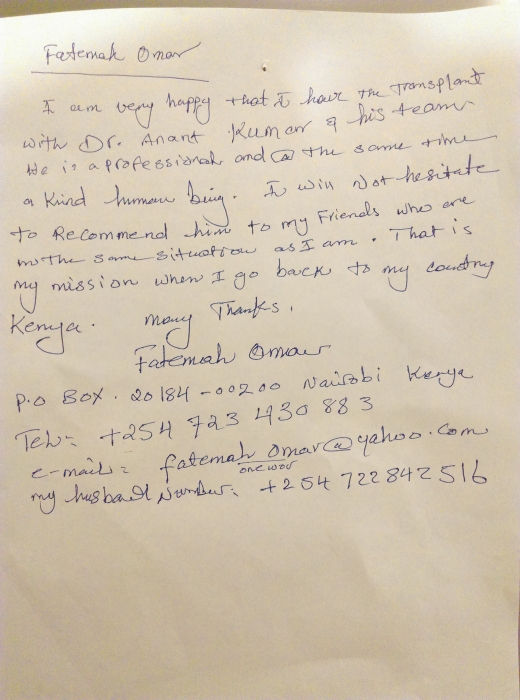 Fatemah Omar
I am very happy that I have the Transplant
with Dr. Anant Kumar & his team.
He is a professional and @ the same time
a kind human being. I will Not hesitate
to Recommend him to my Friends who are
in the same situation as I am. That is
my mission when I go back to my country
Kenya. Many Thanks.
Fatemah Omar
P.O BOX. 20184-00200 Nairobi Kenya
Tel:- +254 723 430 883
e-mail:- fatemah omar@yahoo.com
one word
my husband Number: +254 722842516